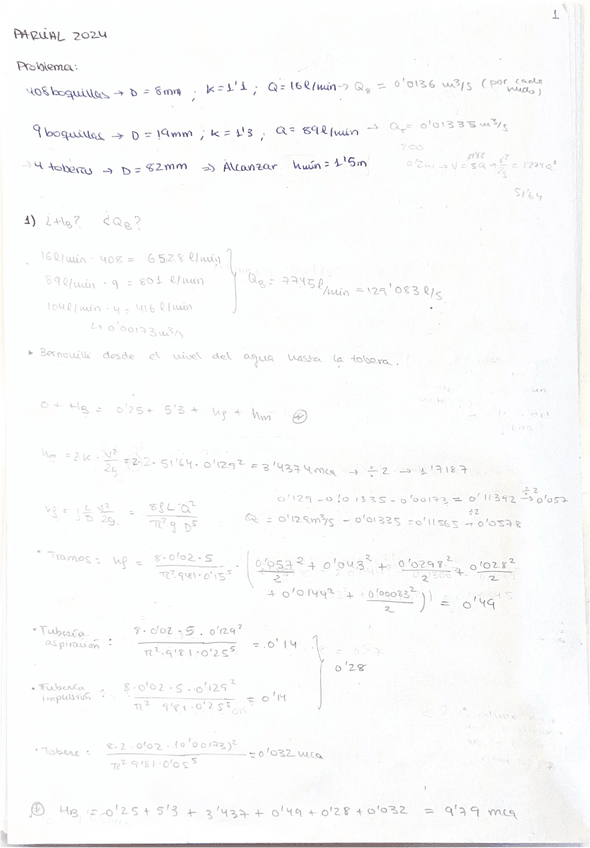 1
PARCIAL 2024
Problema:
408 boquillas → D = 8mm ; K = 1'1 ; Q = 16 l/min → Q_B = 0'0136 m³/s (por cada nudo)
9 boquillas → D = 19mm ; K = 1'3 ; Q = 89 l/min → Q_T = 0'01335 m³/s
→ 4 toberas → D = 82mm ⇒ Alcanzar hmín = 1'5m
51'64
1) ¿H_B? ¿Q_B?
16 l/min · 408 = 6528 l/min
89 l/min · 9 = 801 l/min
104 l/min · 4 = 416 l/min
Q_B = 7745 l/min = 129'083 l/s
↳ 0'00173 m³/s
• Bernouilli desde el nivel del agua hasta la tobera.
0 + H_B = 0'25 + 5'3 + hf + hm ⊕
hm = 2K · v²/2g = 2·2 · 51'64 · 0'129² = 3'4374 mca → ÷2 → 1'7187
0'129 - 0'01335 - 0'00173 = 0'11392 ÷2 → 0'057
hf = f L/D v²/2g = 8fL·Q²/π² g D⁵
Q = 0'129 m³/s - 0'01335 = 0'11565 ÷2 → 0'0578
• Tramos: hf = 8·0'02·5/π²·9'81·0'15⁵ · (0'057²/2 + 0'043² + 0'0298²/2 + 0'028²/2
+ 0'0144² + 0'00083²/2) = 0'49
• Tubería aspiración: 8·0'02·5·0'129²/π²·9'81·0'25⁵ = 0'14
0'28
• Tubería impulsión: 8·0'02·5·0'129²/π² 9'81·0'25⁵ = 0'14
• Tobera: 8·2·0'02·(0'00173)²/π²·9'81·0'05⁵ = 0'032 mca
⊕ H_B = 0'25 + 5'3 + 3'437 + 0'49 + 0'28 + 0'032 = 9'79 mca